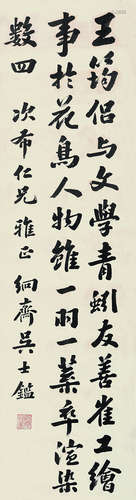 王筠侣与文學青蚓友善雀工繪
事於花鳥人物雖一羽一葉卒渲染
數四 次希仁兄雅正 絅齋吳士鑑